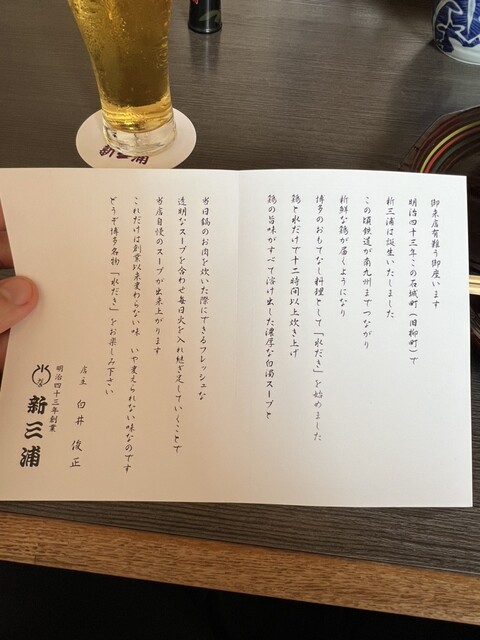 御来店有難う御座います
明治四十三年この石城町(旧柳町)で
新三浦は誕生いたしました
この頃鉄道が南九州までつながり
新鮮な鶏が届くようになり
博多のおもてなし料理として「水だき」を始めました
鶏と水だけで十二時間以上炊き上げ
鶏の旨味がすべて溶け出した濃厚な白濁スープと
当日鍋のお肉を炊いた際にできるフレッシュな
透明なスープを合わせ毎日火を入れ継ぎ足していくことで
当店自慢のスープが出来上がります
これだけは創業以来変わらない味 いや変えられない味なのです
どうぞ博多名物「水だき」をお楽しみ下さい
店主 白井 俊正
明治四十三年創業
新三浦
新三浦